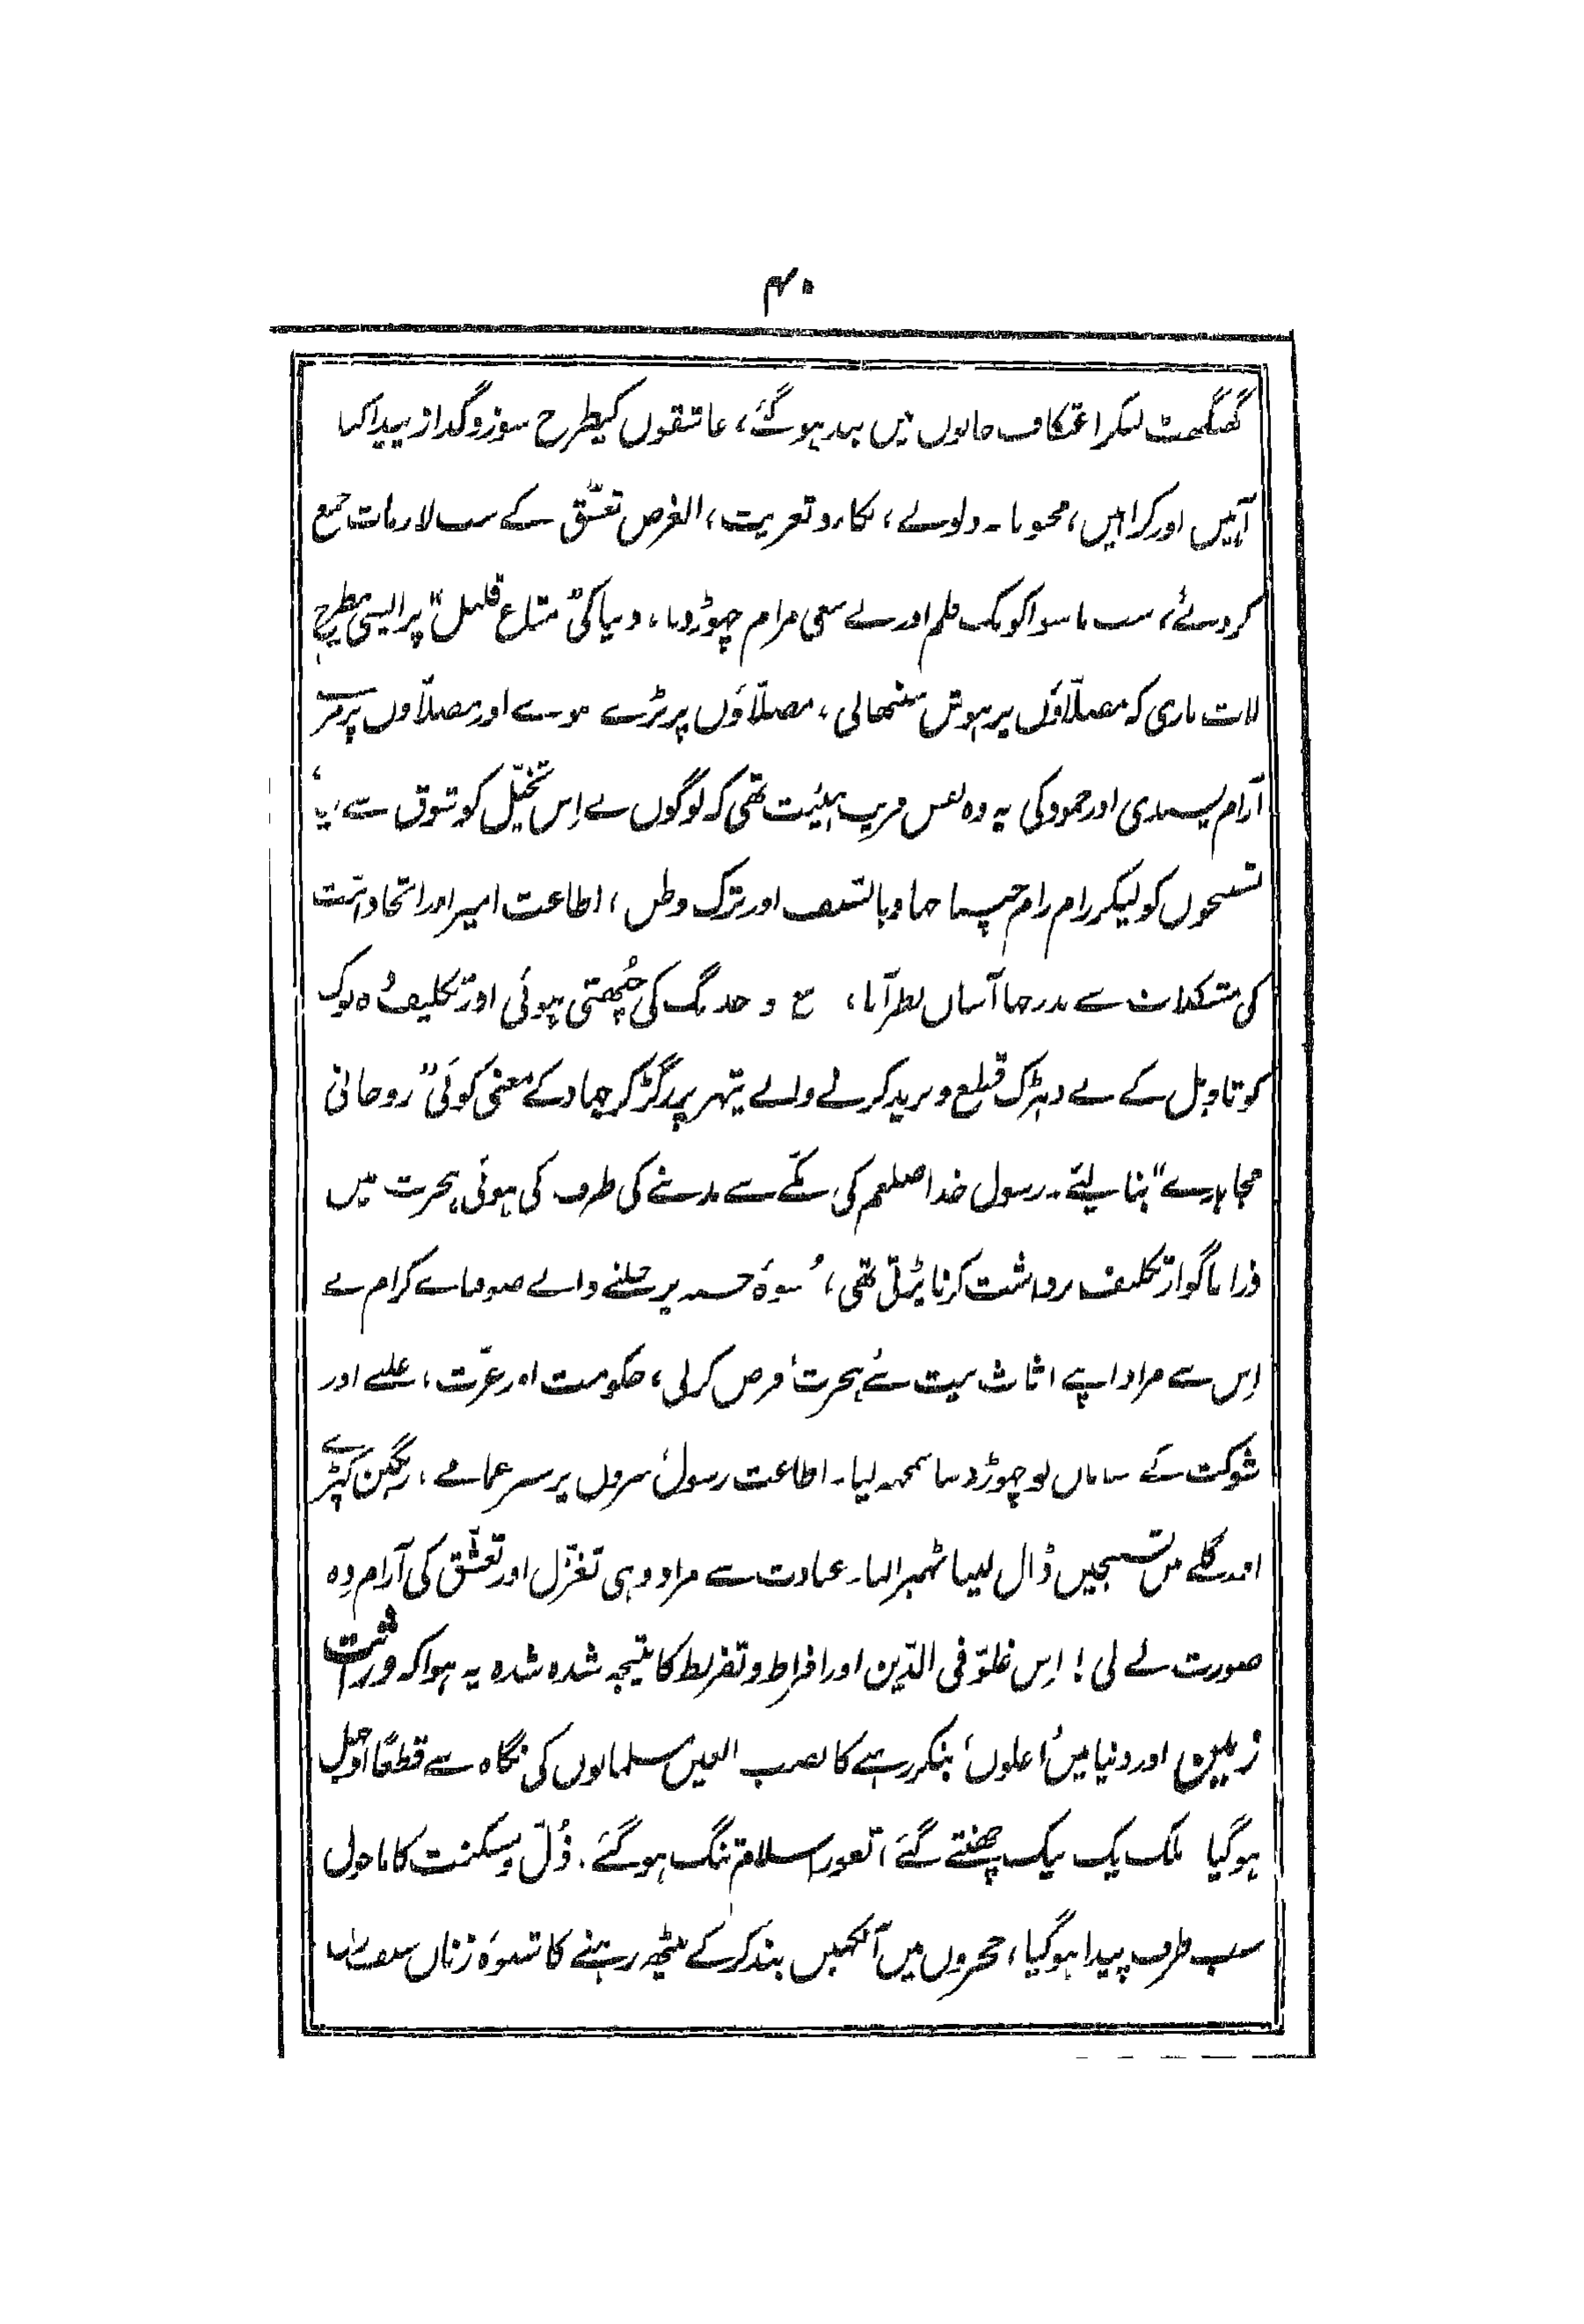 ۴۰
گھنگھٹ لیکر اعتکاف خانوں میں بند ہوگئے، عاشقوں کیطرح سوز و گداز پیدا کیا
آہیں اور کراہیں، محبوبانہ ولولے، بکاء و تعزیت، الغرض تعشّق کے سب لازمات جمع
کر دئے، سب ماسوا کو یک قلم اور بے سعی مرام چھوڑ دیا، دنیا کی "متاع قلیل" پر ایسی طرح
لات ماری کہ مصلّاؤں پر ہوش سنبھالی، مصلّاؤں پر بڑے ہوئے اور مصلّاوں پر مرے
آرام پسندی اور جمود کی یہ وہ نفس فریب ہیئت تھی کہ لوگوں نے اِس تخیّل کو شوق سے لیا،
تسبیحوں کو لیکر رام رام جپنا جہاد بالسیف اور ترک وطن، اطاعت امیر اور اتحاد امّت
کی مشکلات سے بدرجہا آسان نظر آیا، تیغ و خدنگ کی چُبھتی ہوئی اور تکلیف دہ نوک
کو تاویل کے بے دہڑک قطع و برید کرنے والے پتھر پر رگڑ کر جہاد کے معنی کوئی "روحانی
مجاہدے" بنا لئے۔ رسول خدا صلعم کی مکّے سے مدینے کی طرف کی ہوئی ہجرت میں
ذرا ناگوار تکلیف برداشت کرنا پڑتی تھی، 'اسوۂ حسنہ پر چلنے والے صوفیائے کرام نے
اِس سے مراد اپنے اثاث بیت سے 'ہجرت' فرض کرلی، حکومت اور عزّت، غلبے اور
شوکت کے سامان کو چھوڑ دینا سمجھ لیا۔ اطاعت رسول سروں پر سبز عمامے، رنگین کپڑے
اور گلے میں تسبیحیں ڈال لینا ٹھہرا لیا۔ عبادت سے مراد وہی تغزّل اور تعشّق کی آرام دہ
صورت لے لی! اِس غلوّ فی الدّین اور افراط و تفریط کا نتیجہ شدہ شدہ یہ ہوا کہ وراثت
زمین اور دنیا میں 'اعلون' بنکر رہنے کا نصب العین مسلمانوں کی نگاہ سے قطعًا اوجھل
ہوگیا ملک یک یک چھنتے گئے، ثغور اسلام تنگ ہوگئے۔ ذُلّ و مسکنت کا ماحول
سب طرف پیدا ہوگیا، حجروں میں آنکھیں بند کرکے بیٹھ رہنے کا شیوۂ زناں